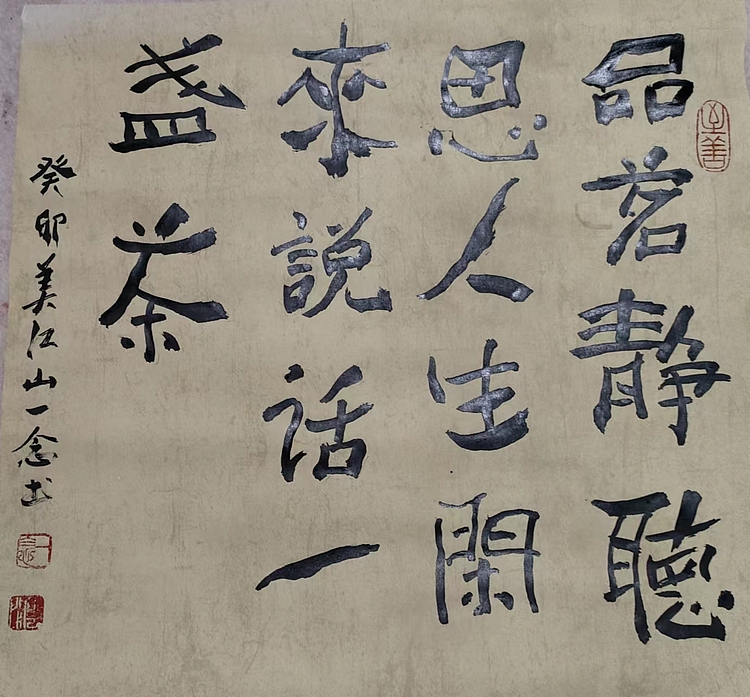 品茗靜聽
思人生閑
來説話一
盏茶
癸卯美江山一念书
至善